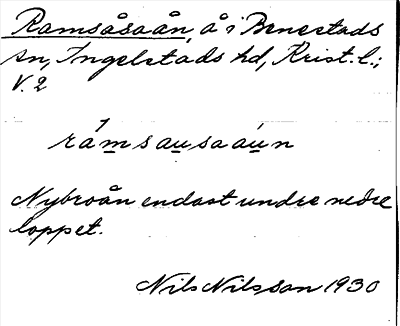 Ramsåsaån, å i Benestads
sn, Ingelstads hd, Krist. l.;
V. 2
rámsau̲saáu̲n
Nybroån endast undre nedre
loppet.
Nils Nilsson 1930